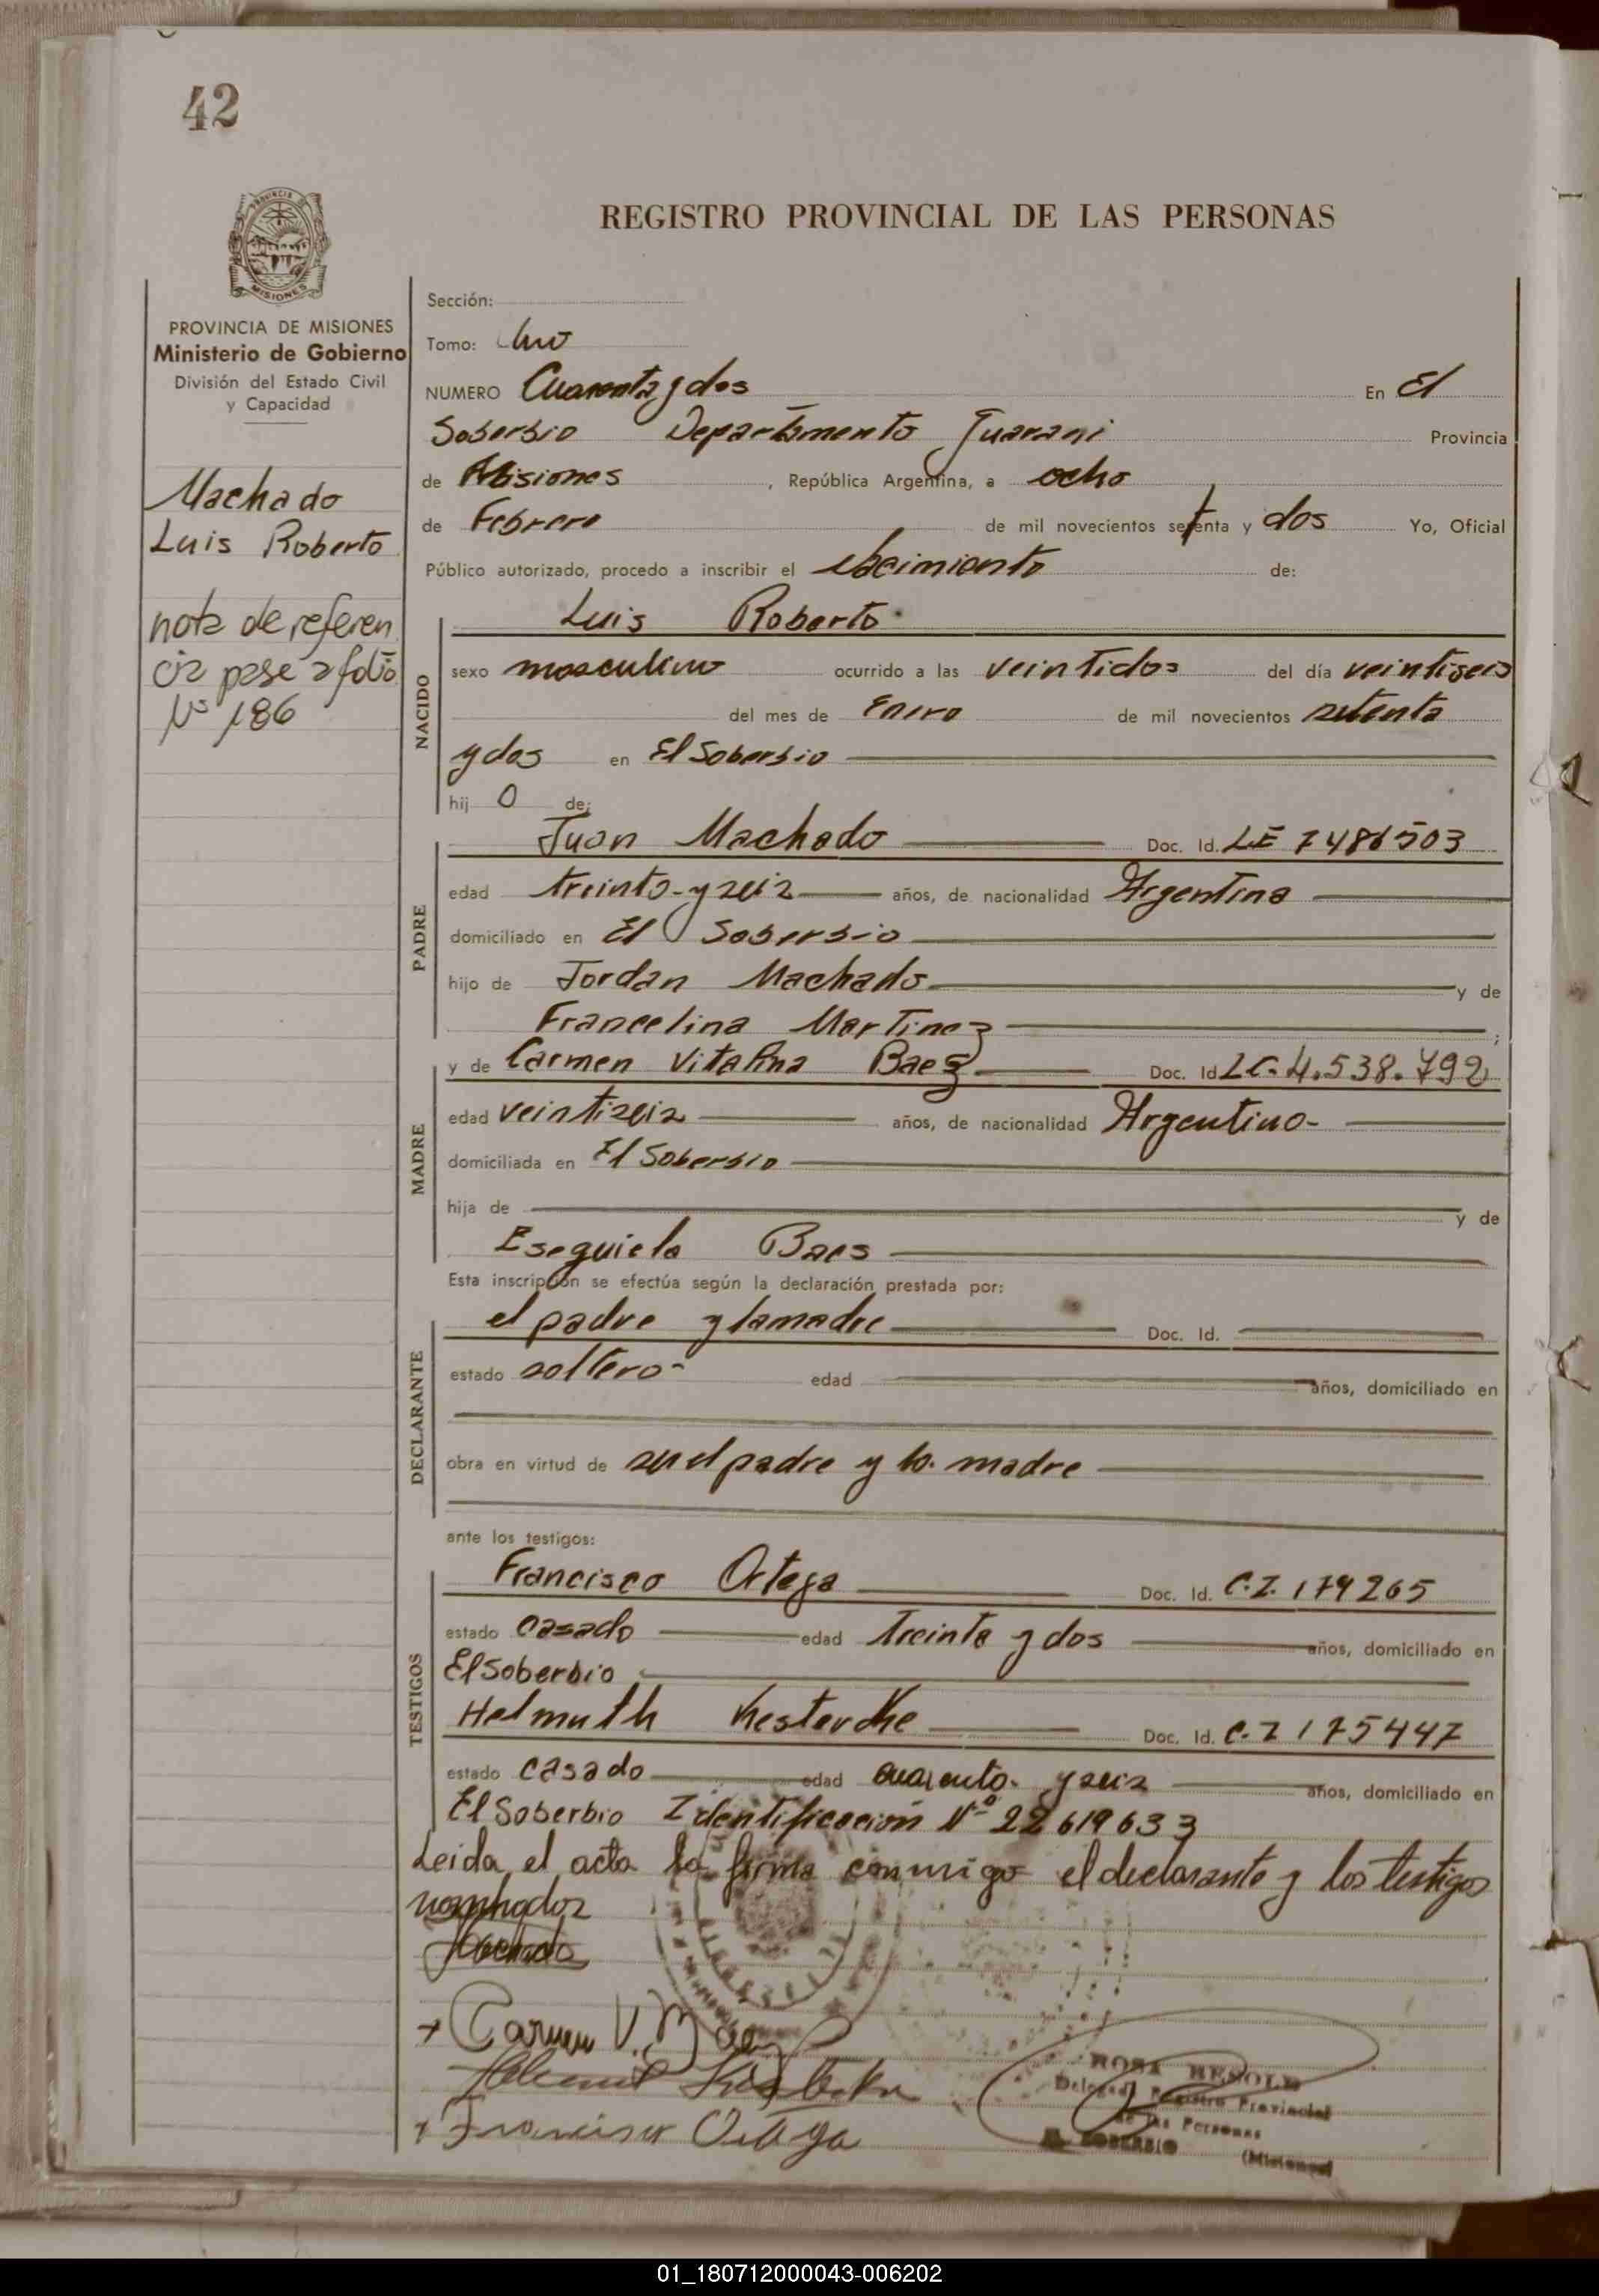 42
REGISTRO PROVINCIAL DE LAS PERSONAS
PROVINCIA DE MISIONES
Ministerio de Gobierno
División del Estado Civil
y Capacidad
Machado
Luis Roberto
nota de referen
cia pase a folio
Nº 186
Sección:
Tomo: Uno
NUMERO Cuarenta y dos En El
Soberbio Departamento Guarani Provincia
de Misiones, República Argentina, a ocho
de Febrero de mil novecientos setenta y dos Yo, Oficial
Público autorizado, procedo a inscribir el Nacimiento de:
NACIDO
Luis Roberto
sexo masculino ocurrido a las veintidos del día veintiseis
del mes de Enero de mil novecientos setenta
y dos en El Soberbio
hijo de:
PADRE
Juan Machado Doc. Id. LE 7486503
edad treinta y seis años, de nacionalidad Argentina
domiciliado en El Soberbio
hijo de Jordan Machado y de
Francelina Martinez;
MADRE
y de Carmen Vitalina Baez Doc. Id LC. 4.538.792
edad veintiseis años, de nacionalidad Argentina
domiciliada en El Soberbio
hija de y de
Esequiela Baes
Esta inscripción se efectúa según la declaración prestada por:
DECLARANTE
el padre y la madre Doc. Id.
estado soltero edad años, domiciliado en
obra en virtud de ser el padre y la madre
ante los testigos:
TESTIGOS
Francisco Ortega Doc. Id. C.I. 179265
estado casado edad treinta y dos años, domiciliado en
El Soberbio
Helmuth Doc. Id. C.I 175447
estado casado edad cuarenta y seis años, domiciliado en
El Soberbio Identificación Nº 22619633
Leida el acta la firma conmigo el declarante y los testigos
nombrados
Machado
Carmen V. Baez
Francisco Ortega
ROSA
Delegada Registro Provincial
de las Personas
EL SOBERBIO (Misiones)
01_180712000043-006202